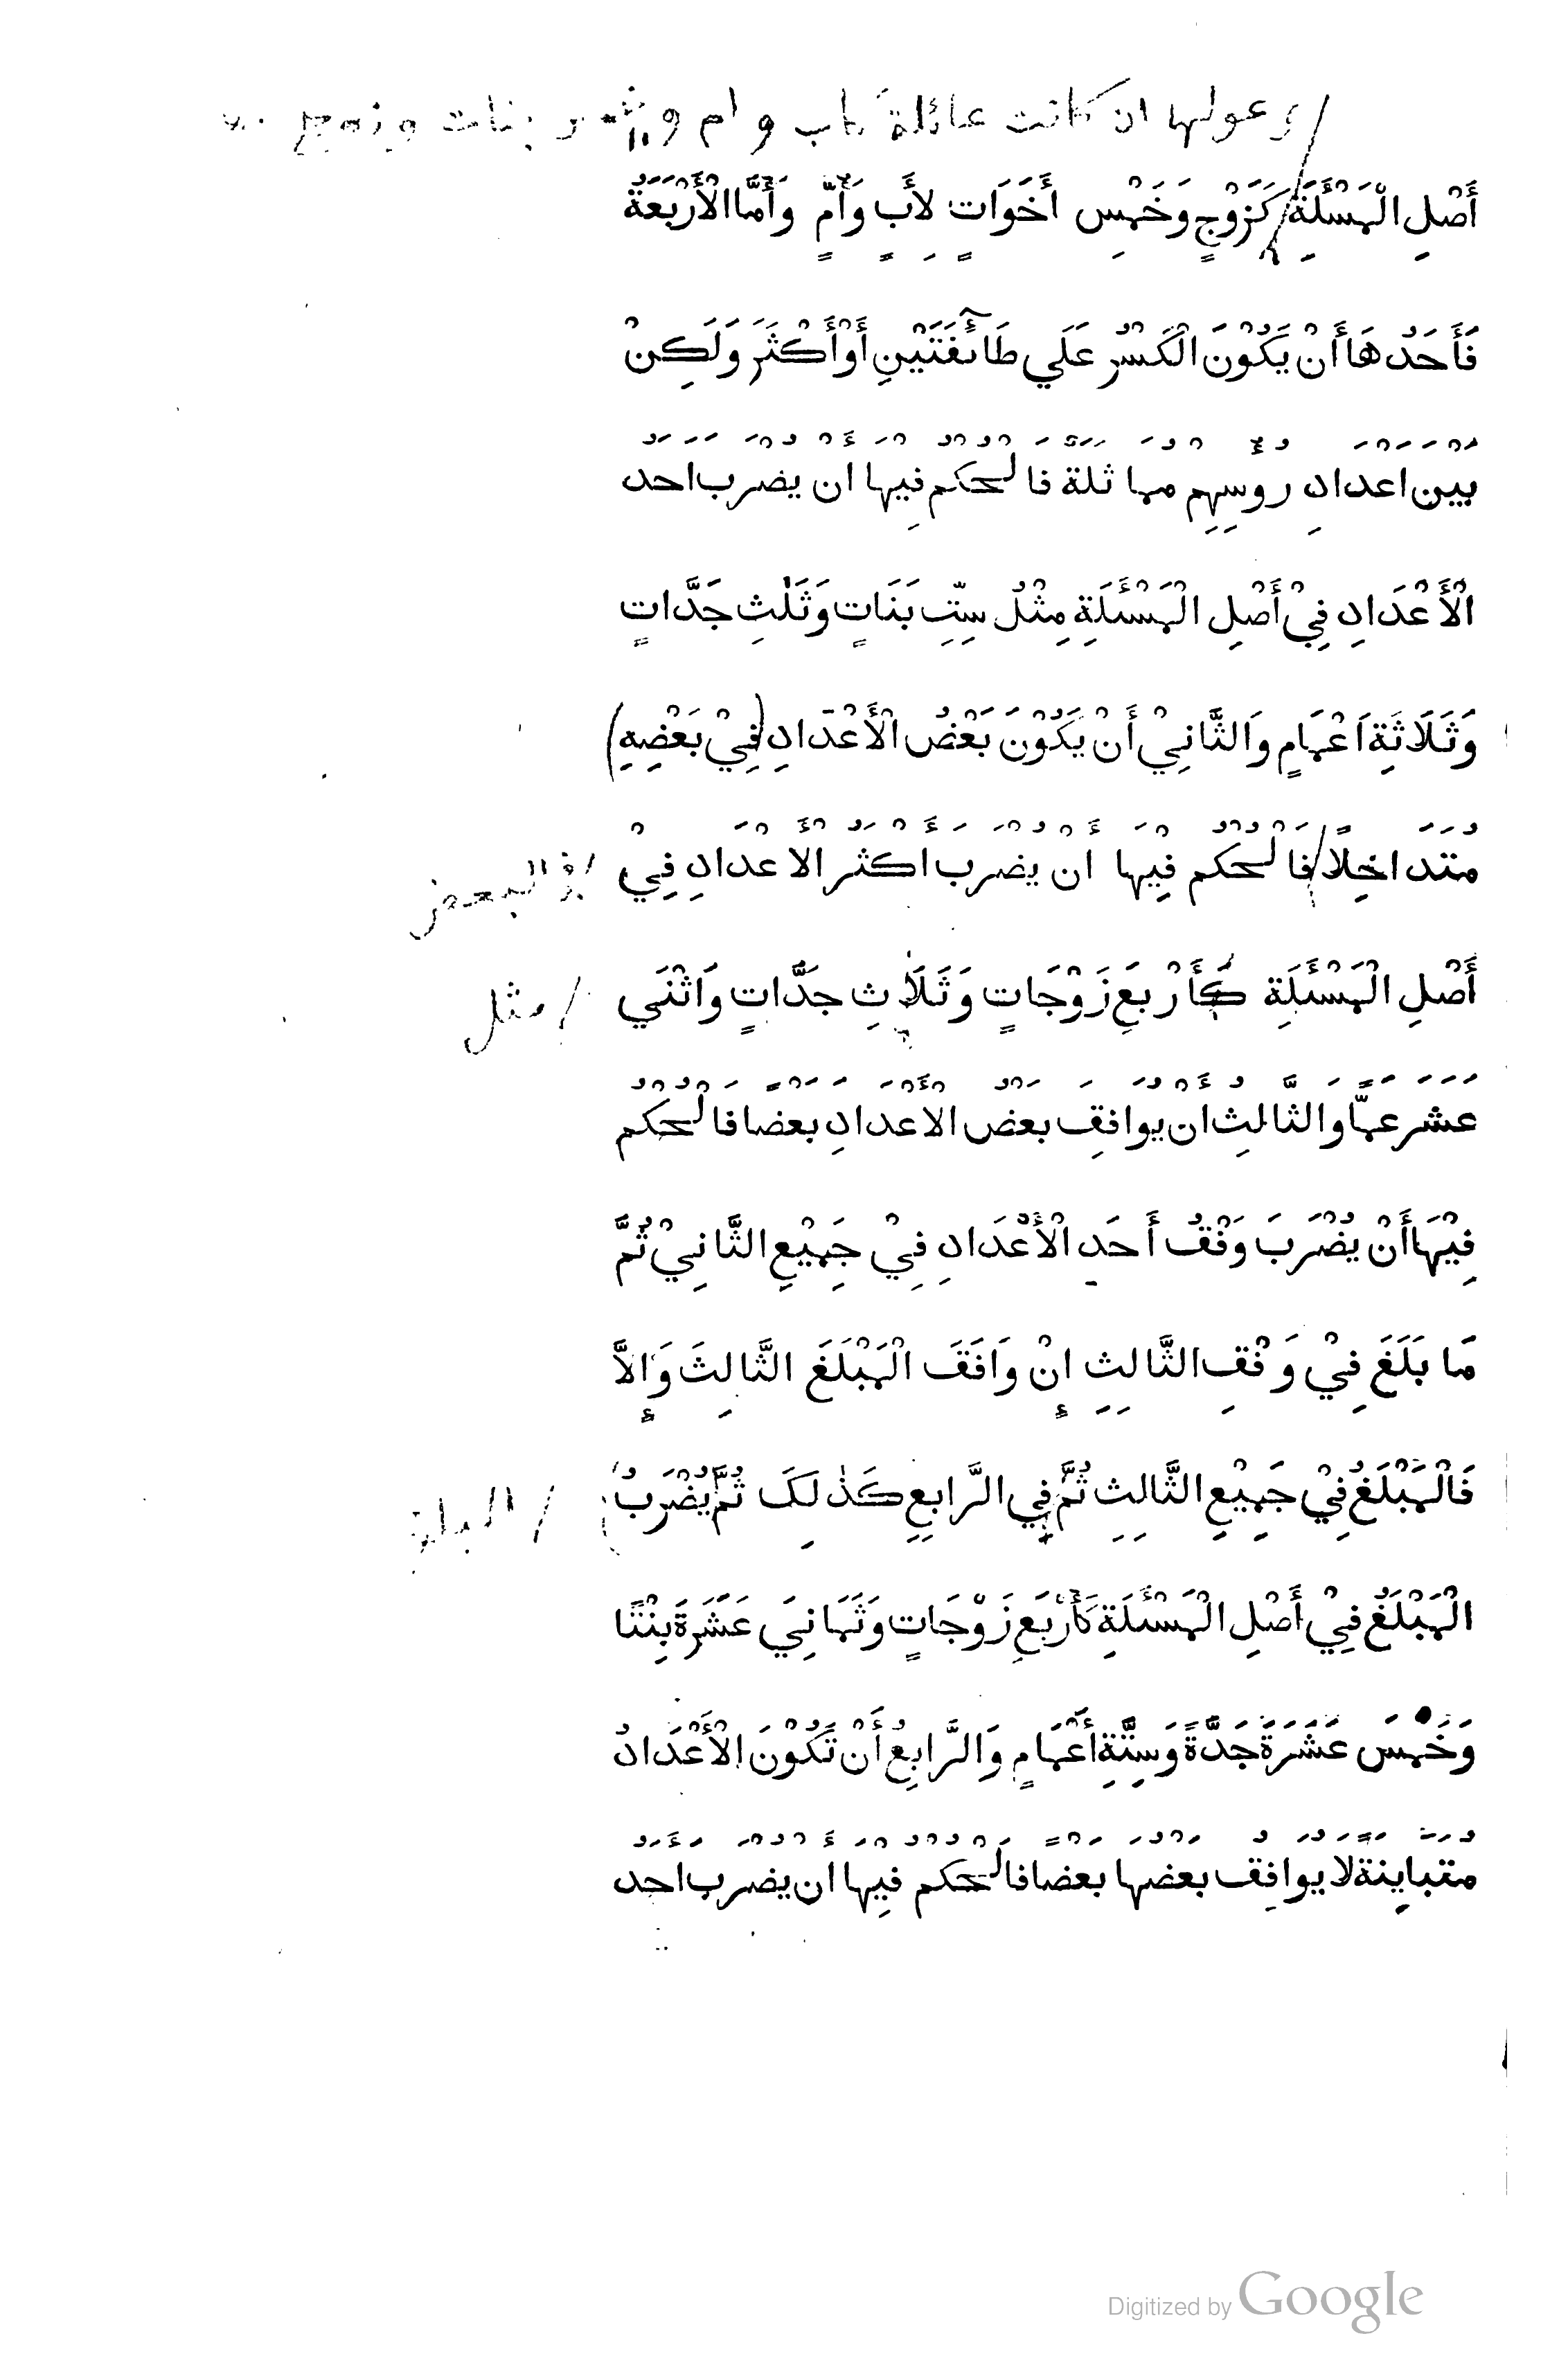 وعولها ان كانت عائلة كاب و ام و بنات وزوج
أَصْلِ الْمَسْئَلَةِ كَزَوْجٍ وَخَمْسِ أَخَوَاتٍ لِأَبٍ وَأُمٍّ وَأَمَّا الْأَرْبَعَةُ
فَأَحَدُهَا أَنْ يَكُوْنَ الْكَسْرُ عَلَي طَائِفَتَيْنِ أَوْ أَكْثَرَ وَلَكِنْ
بَيْنَ أَعْدَادِ رُؤُسِهِمْ مُمَاثَلَةٌ فَالْحُكْمُ فِيْهَا أَنْ يُضْرَبَ أَحَدُ
الْأَعْدَادِ فِيْ أَصْلِ الْمَسْئَلَةِ مِثْلُ سِتِّ بَنَاتٍ وَثَلٰثِ جَدَّاتٍ
وَثَلَاثَةِ اَعْمَامٍ وَالثَّانِيْ أَنْ يَكُوْنَ بَعْضُ الْأَعْدَادِ (فِيْ بَعْضِهِ)
مُتَدَاخِلًا فَالْحُكْمُ فِيْهَا أَنْ يُضْرَبَ أَكْثَرُ الْأَعْدَادِ فِيْ / في البعض
أَصْلِ الْمَسْئَلَةِ كَأَرْبَعِ زَوْجَاتٍ وَثَلَاثِ جَدَّاتٍ وَاثْنَي / مثل
عَشَرَ عَمًّا وَالثَّالِثُ أَنْ يُوَافِقَ بَعْضُ الْأَعْدَادِ بَعْضًا فَالْحُكْمُ
فِيْهَا أَنْ يُضْرَبَ وَفْقُ أَحَدِ الْأَعْدَادِ فِيْ جَمِيْعِ الثَّانِيْ ثُمَّ
مَا بَلَغَ فِيْ وَفْقِ الثَّالِثِ إِنْ وَافَقَ الْمَبْلَغَ الثَّالِثَ وَإِلَّا
فَالْمَبْلَغُ فِيْ جَمِيْعِ الثَّالِثِ ثُمَّ فِي الرَّابِعِ كَذٰلِكَ ثُمَّ يُضْرَبُ
الْمَبْلَغُ فِيْ أَصْلِ الْمَسْئَلَةِ كَأَرْبَعِ زَوْجَاتٍ وَثَمَانِيَ عَشَرَةَ بِنْتًا
وَخَمْسَ عَشَرَةَ جَدَّةً وَسِتَّةِ أَعْمَامٍ وَالرَّابِعُ أَنْ تَكُوْنَ الْأَعْدَادُ
مُتَبَايِنَةً لَا يُوَافِقُ بَعْضُهَا بَعْضًا فَالْحُكْمُ فِيْهَا أَنْ يُضْرَبَ أَحَدُ
Digitized by Google